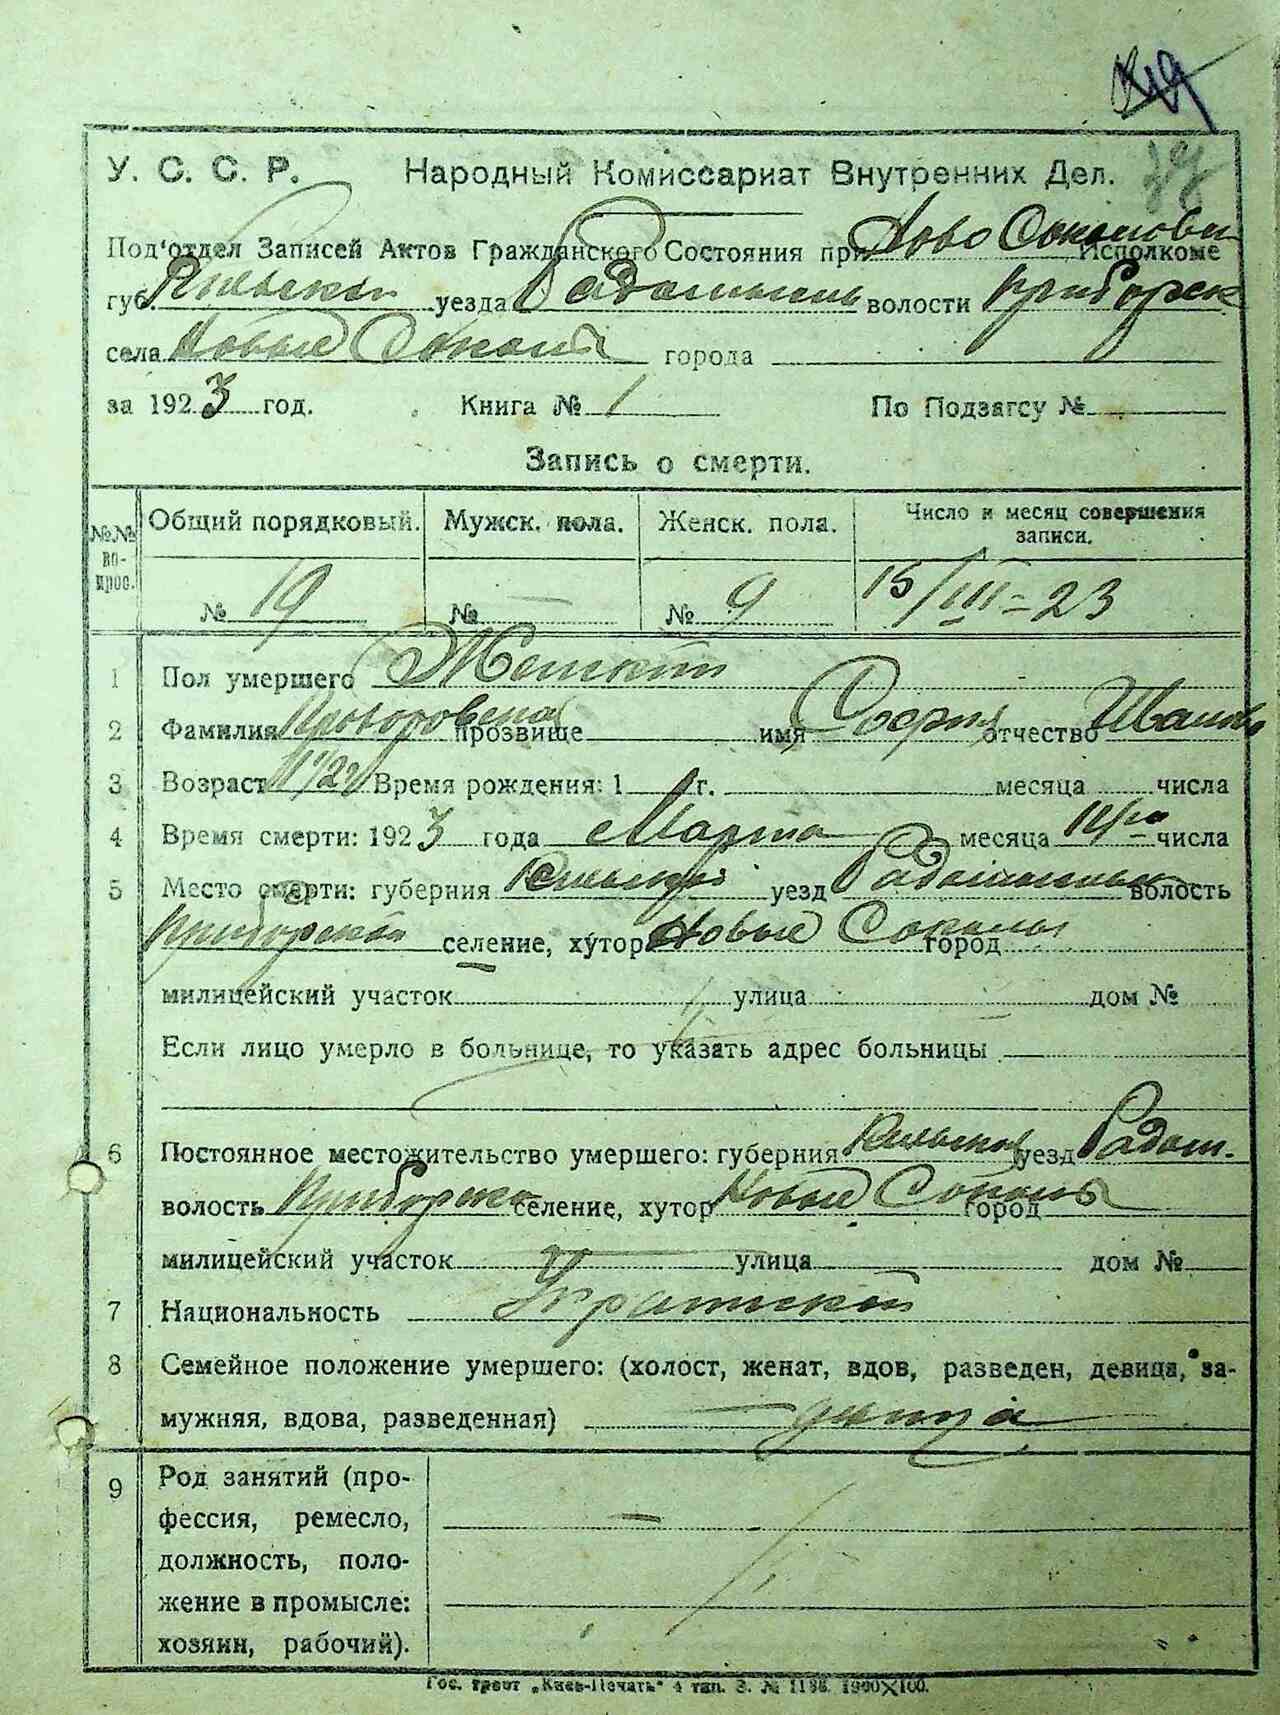 У. С. С. Р. Народный Комиссариат Внутренних Дел.
Под‘отдел Записей Актов Гражданского Состояния при Ново Соколовск Исполкоме
губ. Киевской уезда волости Приборск
села Новые Соколы города
за 1923 год. Книга № 1 По Подзагсу №
Запись о смерти.
№№ вопрос. Общий порядковый. Мужск. пола. Женск. пола. Число и месяц совершения записи.
№ 19 № № 9 15/III-23
1 Пол умершего Женский
2 Фамилия прозвище имя София отчество Иванова
3 Возраст Время рождения: 1 г. месяца числа
4 Время смерти: 1923 года Марта месяца 14го числа
5 Место смерти: губерния Киевская уезд волость
Приборская селение, хутор Новые Соколы город
милицейский участок улица дом №
Если лицо умерло в больнице, то указать адрес больницы
6 Постоянное местожительство умершего: губерния Киевская уезд Радом.
волость Приборска селение, хутор Новые Соколы город
милицейский участок улица дом №
7 Национальность
8 Семейное положение умершего: (холост, женат, вдов, разведен, девица, за-
мужняя, вдова, разведенная) девица
9 Род занятий (про-
фессия, ремесло,
должность, поло-
жение в промысле:
хозяин, рабочий).
Гос. трест „Киев-Печать“ 4 тип. З. № 1186. 1900X100.